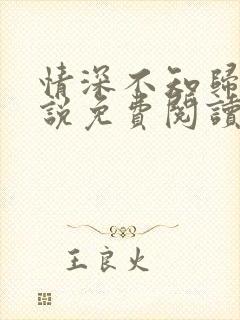 情深不知歸
說免費閱讀
王良火